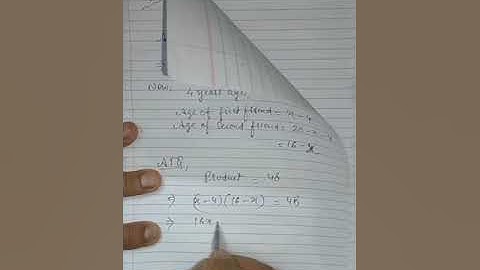 Now,
4 years ago,
Age of first friend = x - 4
Age of second friend = 20 - x - 4
= 16 - x
ATQ,
Product = 48
⇒ (x - 4)(16 - x) = 48
⇒ 16x